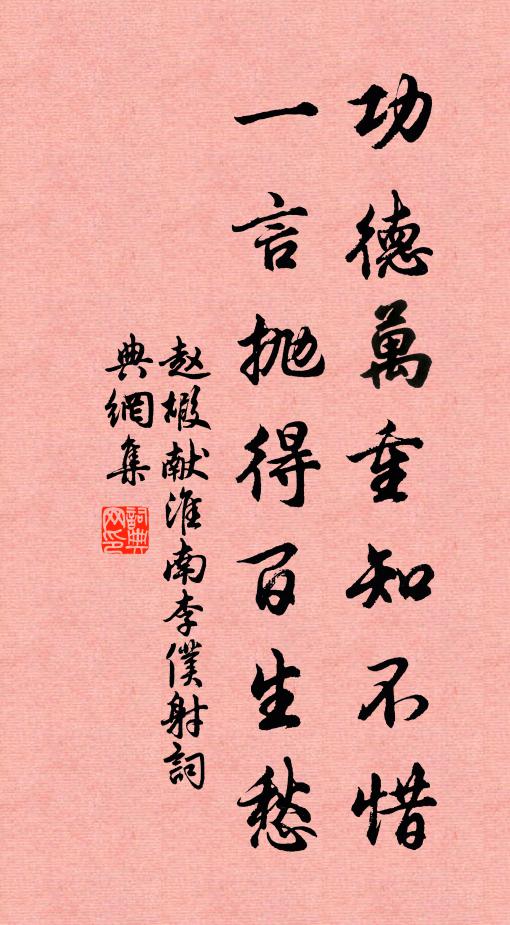 功德萬重知不惜
一言抛得百生愁
赵嘏献淮南李僕射詞
典網集
詞典網印